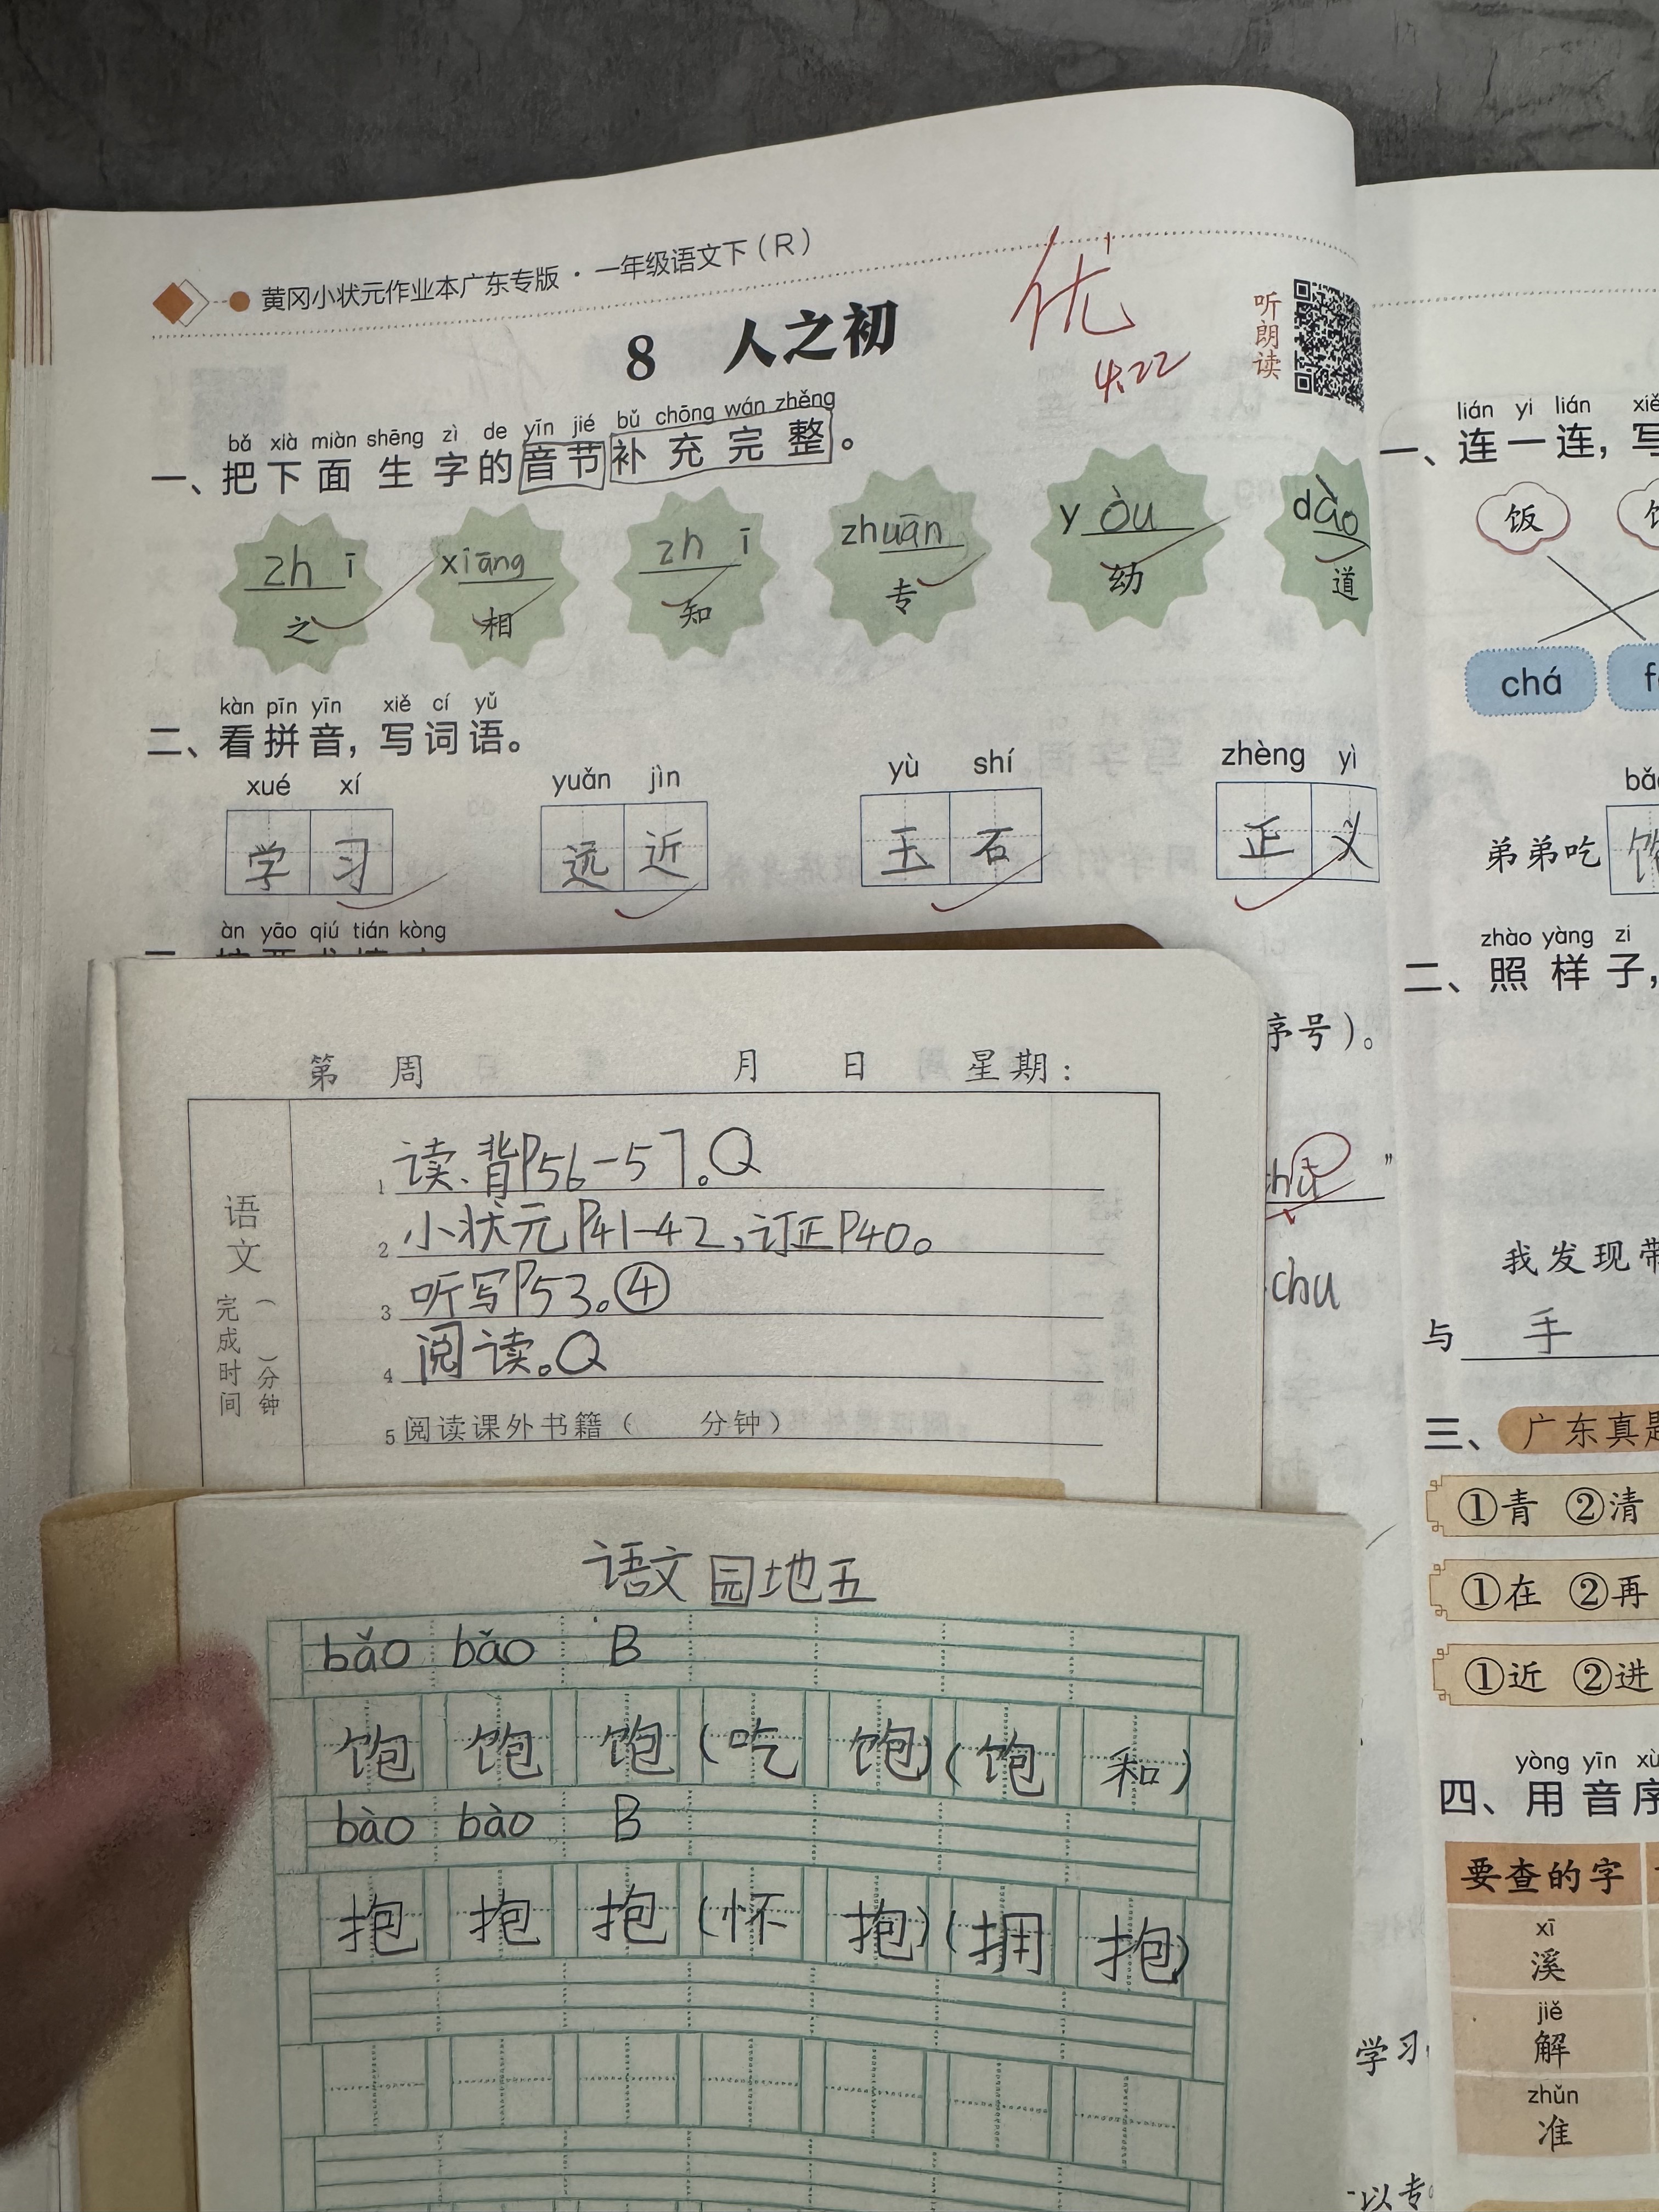 黄冈小状元作业本广东专版·一年级语文下（R）
8 人之初
优
4.22
听朗读
bǎ xià miàn shēng zì de yīn jié bǔ chōng wán zhěng
一、把下面生字的音节补充完整。
zhī xiāng zhī zhuān yòu dào
之 相 知 专 幼 道
kàn pīn yīn xiě cí yǔ
二、看拼音，写词语。
xué xí yuǎn jìn yù shí zhèng yì
学习 远近 玉石 正义
àn yāo qiú tián kòng
序号）。
”
chu
第 周 月 日 星期：
语文
完成时间（ ）分钟
1 读、背P56-57。Q
2 小状元P41-42，订正P40。
3 听写P53。④
4 阅读。Q
5 阅读课外书籍（ 分钟）
语文园地五
bǎo bǎo B
饱 饱 饱（吃饱）（饱和）
bào bào B
抱 抱 抱（怀抱）（拥抱）
lián yi lián
一、连一连，写
饭
chá
弟弟吃
zhào yàng zi
二、照样子，
我发现带
与 手
三、广东真题
①青 ②清
①在 ②再
①近 ②进
yòng yīn
四、用音序
要查的字
xī
溪
jiě
解
zhǔn
准
学习
以专